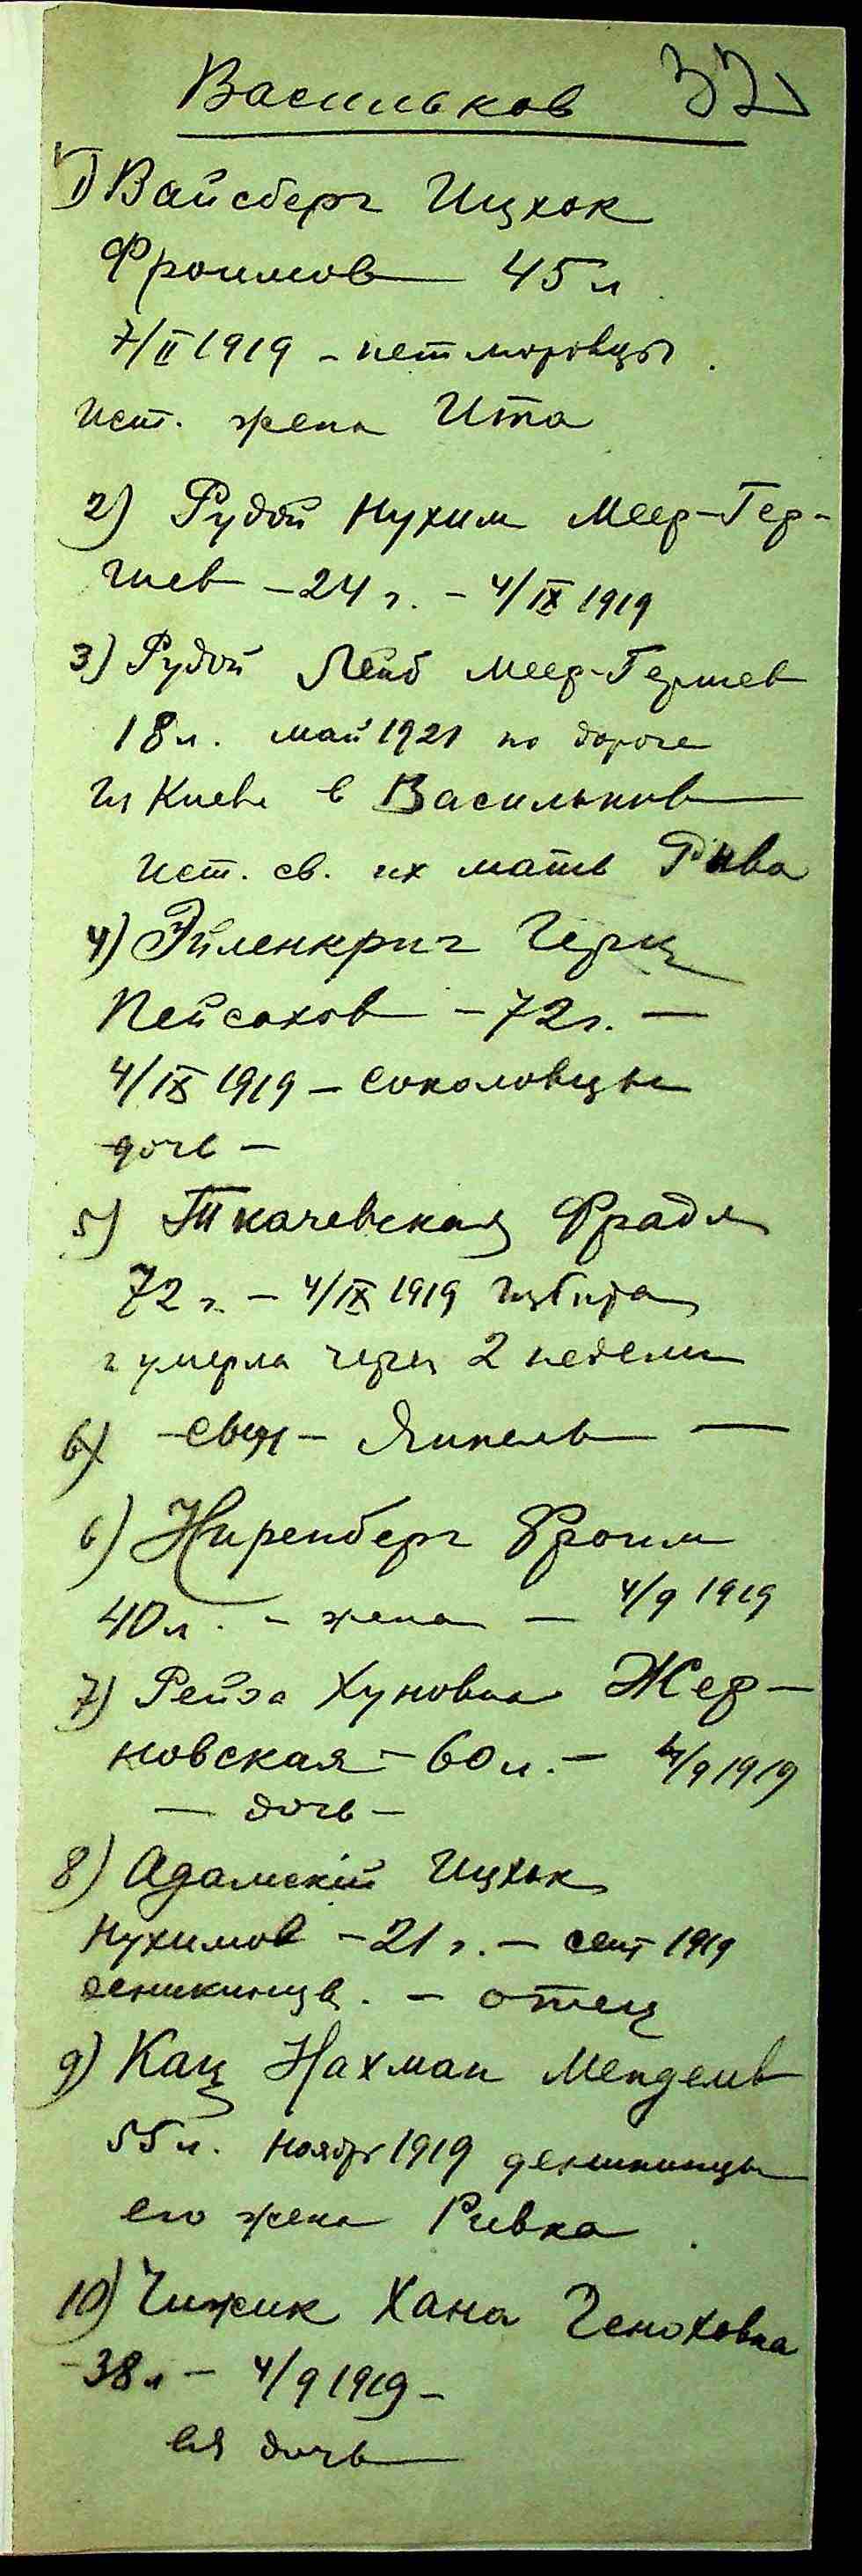 Васильков 32
1) Вайсберг Ицхок
Фроимов 45 л
7/II 1919 – петлюровцы.
Ист. жена Ита
2) Рудой Нухим Меер-Гер-
шев – 24 г. – 4/IX 1919
3) Рудой Лейб Меер-Гершев
18 л. май 1921 по дороге
из Киева в Васильков
Ист. св. их мать Рива
4) Эйленкриг Герц
Пейсахов – 72 г. –
4/IX 1919 – соколовцы
дочь –
5) Ткачевская Фрадя
72 г. – 4/IX 1919 избита
и умерла через 2 недели
6) – сын – Янкель –
6) Ниренберг Фроим
40 л. – жена – 4/9 1919
7) Рейза Хуновна Жер-
новская – 60 л. – 4/9 1919
– дочь –
8) Адамскій Ицхок
Нухимов – 21 г. – сент 1919
деникинцы. – отец
9) Кац Нахман Менделев
55 л. ноябр 1919 деникинцы
его жена Ривка.
10) Чижик Хана Геноховна
– 38 л – 4/9 1919 –
ея дочь